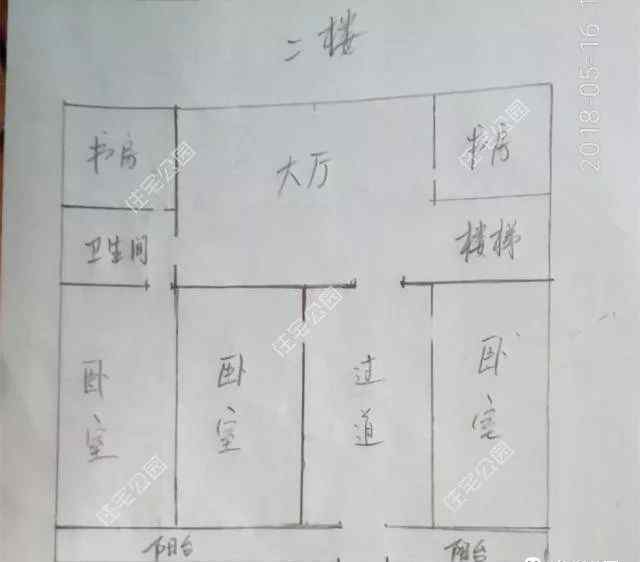 二楼
2018-05-16 1
书房
大厅
书房
卫生间
楼梯
卧室
卧室
过道
卧室
阳台
阳台
住宅公园
住宅公园
住宅公园
住宅公园
住宅公园